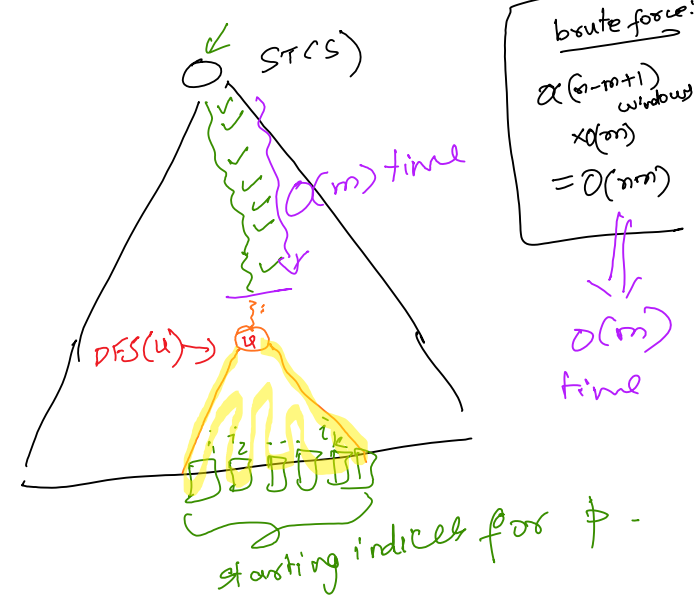 ST(S)
O(m) time
DFS(u) →
u
i₁ i₂ --- iₖ
starting indices for p.
brute force:
O(n-m+1)
windows
×O(m)
= O(nm)
O(m)
time